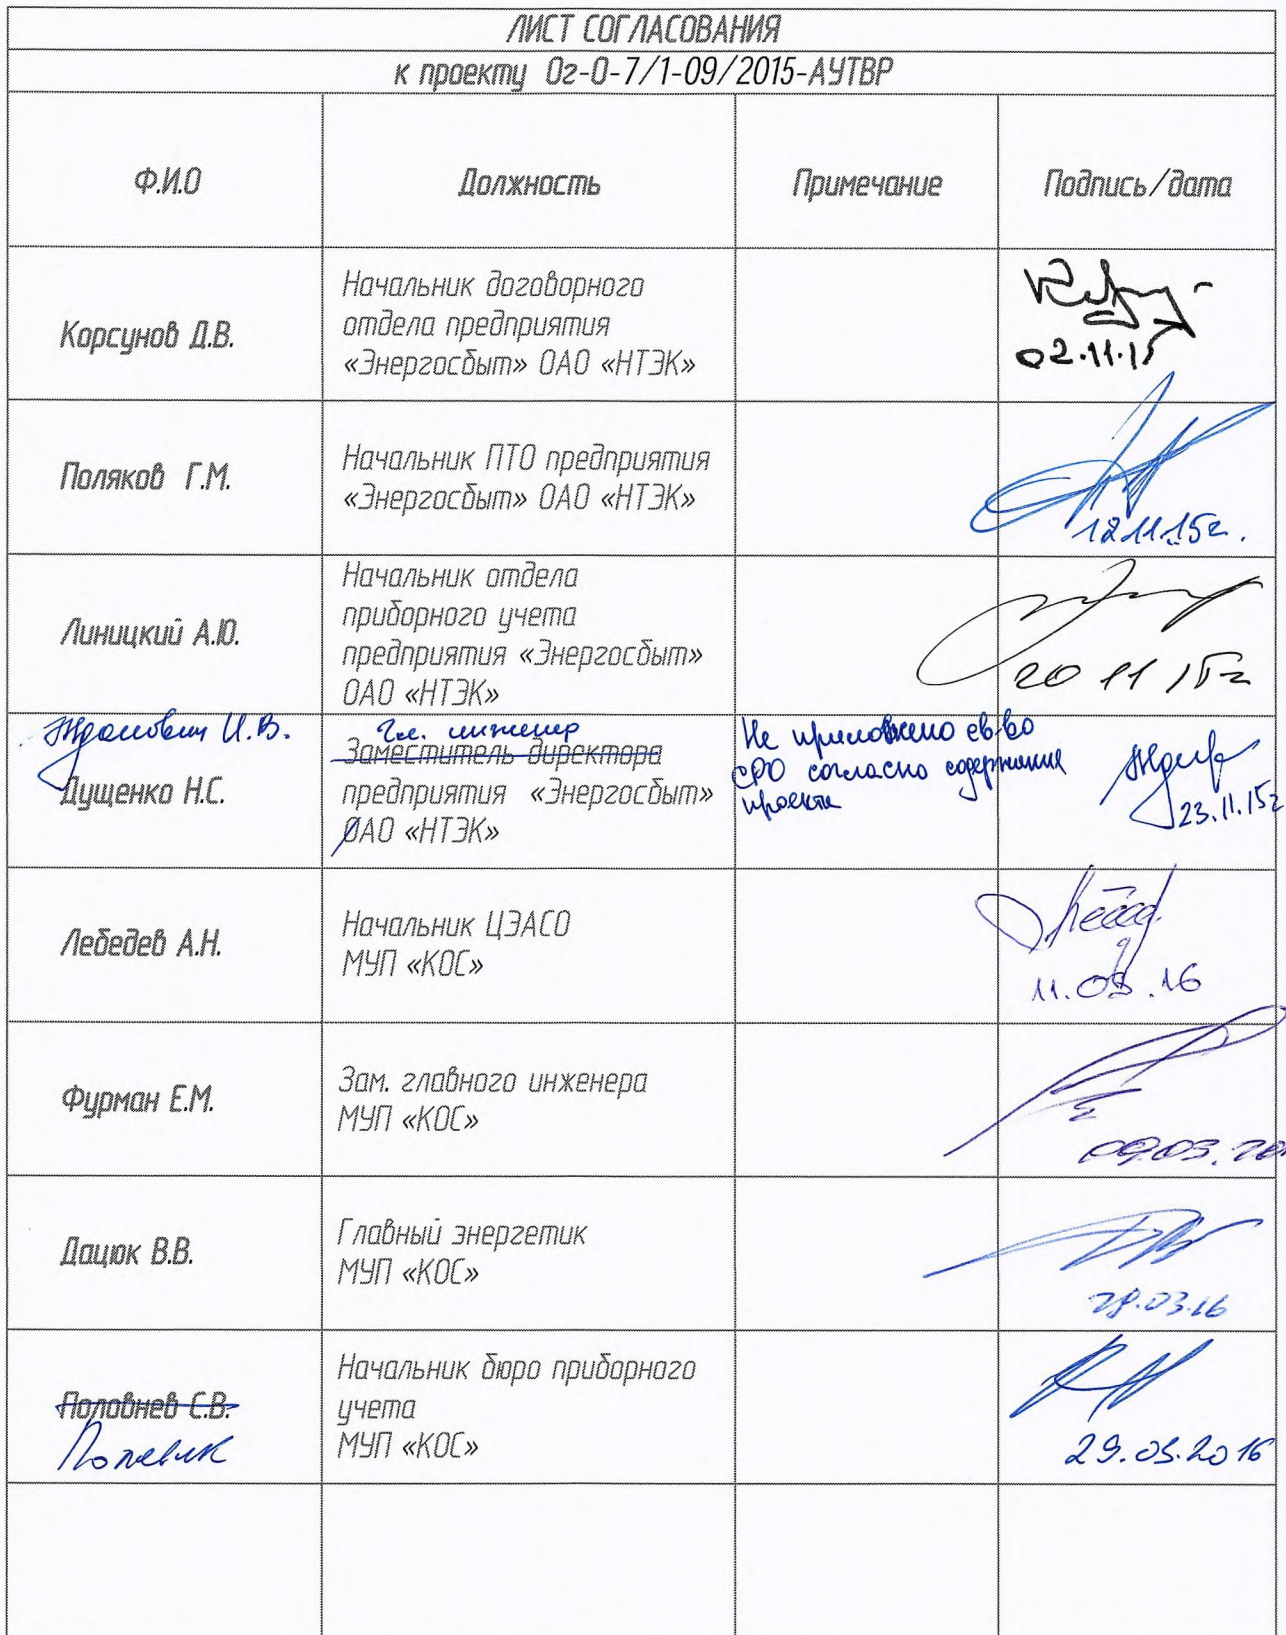 ЛИСТ СОГЛАСОВАНИЯ
к проекту Ог-О-7/1-09/2015-АУТВР
Ф.И.О
Должность
Примечание
Подпись/дата
Корсунов Д.В.
Начальник договорного
отдела предприятия
«Энергосбыт» ОАО «НТЭК»
02.11.15
Поляков Г.М.
Начальник ПТО предприятия
«Энергосбыт» ОАО «НТЭК»
12.11.15г.
Линицкий А.Ю.
Начальник отдела
приборного учета
предприятия «Энергосбыт»
ОАО «НТЭК»
20 11 15г
Жданович И.В.
Дущенко Н.С.
Гл. инженер
Заместитель директора
предприятия «Энергосбыт»
ОАО «НТЭК»
Не приложено св-во
СРО согласно содержания
проекта
23.11.15г
Лебедев А.Н.
Начальник ЦЭАСО
МУП «КОС»
11.03.16
Фурман Е.М.
Зам. главного инженера
МУП «КОС»
09.03.201
Дацюк В.В.
Главный энергетик
МУП «КОС»
28.03.16
Половнев С.В.
Начальник бюро приборного
учета
МУП «КОС»
29.03.2016